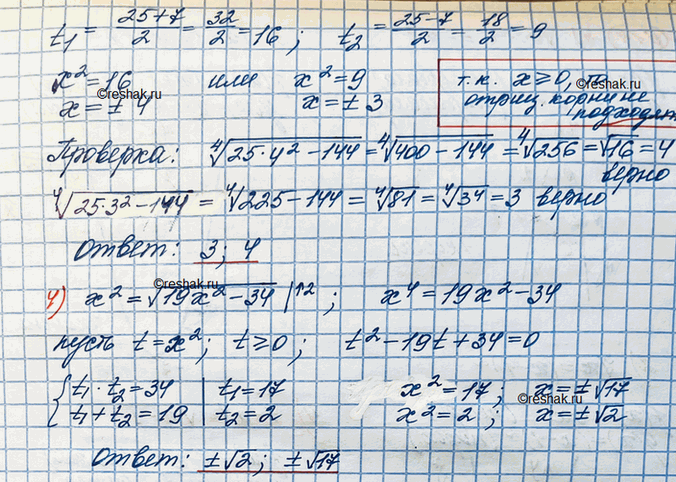 t₁ = (25+7)/2 = 32/2 = 16; t₂ = (25-7)/2 = 18/2 = 9
x² = 16 или x² = 9
x = ±4 x = ±3
т.к. x ≥ 0, то
отриц. корни не
подходят
©reshak.ru
©reshak.ru
Проверка: ⁴√(25·4² - 144) = ⁴√(400 - 144) = ⁴√256 = √16 = 4
верно
⁴√(25·3² - 144) = ⁴√(225 - 144) = ⁴√81 = ⁴√3⁴ = 3 верно
Ответ: 3; 4
©reshak.ru
4) x² = √(19x² - 34) |↑2; x⁴ = 19x² - 34
пусть t = x²; t ≥ 0; t² - 19t + 34 = 0
{ t₁ · t₂ = 34 | t₁ = 17 x² = 17; x = ±√17
t₁ + t₂ = 19 | t₂ = 2 x² = 2; x = ±√2
©reshak.ru
Ответ: ±√2; ±√17